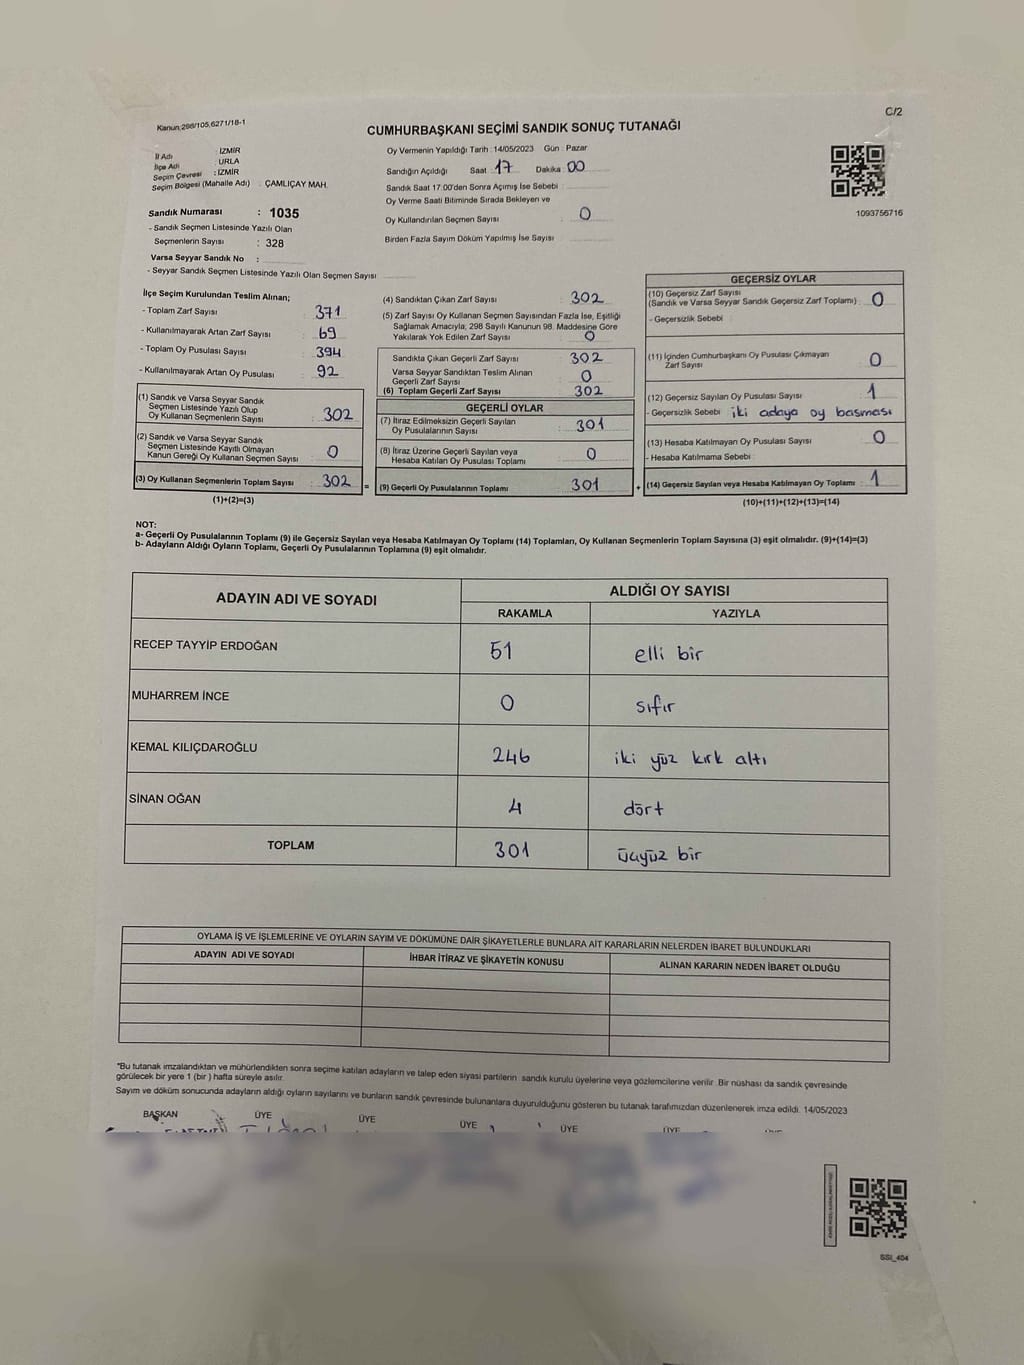 Kanun:298/105,6271/18-1
C/2
CUMHURBAŞKANI SEÇİMİ SANDIK SONUÇ TUTANAĞI
İl Adı : İZMİR
İlçe Adı : URLA
Seçim Çevresi : İZMİR
Seçim Bölgesi (Mahalle Adı) : ÇAMLIÇAY MAH.
Sandık Numarası : 1035
- Sandık Seçmen Listesinde Yazılı Olan
Seçmenlerin Sayısı : 328
Varsa Seyyar Sandık No :
- Seyyar Sandık Seçmen Listesinde Yazılı Olan Seçmen Sayısı
Oy Vermenin Yapıldığı Tarih : 14/05/2023 Gün : Pazar
Sandığın Açıldığı Saat : 17 Dakika : 00
Sandık Saat 17:00'den Sonra Açımış İse Sebebi :
Oy Verme Saati Bitiminde Sırada Bekleyen ve
Oy Kullandırılan Seçmen Sayısı : 0
Birden Fazla Sayım Döküm Yapılmış İse Sayısı :
1093756716
İlçe Seçim Kurulundan Teslim Alınan;
- Toplam Zarf Sayısı : 371
- Kullanılmayarak Artan Zarf Sayısı : 69
- Toplam Oy Pusulası Sayısı : 394
- Kullanılmayarak Artan Oy Pusulası : 92
(1) Sandık ve Varsa Seyyar Sandık
Seçmen Listesinde Yazılı Olup
Oy Kullanan Seçmenlerin Sayısı : 302
(2) Sandık ve Varsa Seyyar Sandık
Seçmen Listesinde Kayıtlı Olmayan
Kanun Gereği Oy Kullanan Seçmen Sayısı : 0
(3) Oy Kullanan Seçmenlerin Toplam Sayısı : 302 =
(1)+(2)=(3)
(4) Sandıktan Çıkan Zarf Sayısı : 302
(5) Zarf Sayısı Oy Kullanan Seçmen Sayısından Fazla İse, Eşitliği
Sağlamak Amacıyla, 298 Sayılı Kanunun 98. Maddesine Göre
Yakılarak Yok Edilen Zarf Sayısı : 0
Sandıkta Çıkan Geçerli Zarf Sayısı : 302
Varsa Seyyar Sandıktan Teslim Alınan
Geçerli Zarf Sayısı : 0
(6) Toplam Geçerli Zarf Sayısı : 302
GEÇERLİ OYLAR
(7) İtiraz Edilmeksizin Geçerli Sayılan
Oy Pusulalarının Sayısı : 301
(8) İtiraz Üzerine Geçerli Sayılan veya
Hesaba Katılan Oy Pusulası Toplamı : 0
(9) Geçerli Oy Pusulalarının Toplamı : 301 +
GEÇERSİZ OYLAR
(10) Geçersiz Zarf Sayısı
(Sandık ve Varsa Seyyar Sandık Geçersiz Zarf Toplamı) : 0
- Geçersizlik Sebebi :
(11) İçinden Cumhurbaşkanı Oy Pusulası Çıkmayan
Zarf Sayısı : 0
(12) Geçersiz Sayılan Oy Pusulası Sayısı : 1
- Geçersizlik Sebebi : iki adaya oy basması
(13) Hesaba Katılmayan Oy Pusulası Sayısı : 0
- Hesaba Katılmama Sebebi :
(14) Geçersiz Sayılan veya Hesaba Katılmayan Oy Toplamı : 1
(10)+(11)+(12)+(13)=(14)
NOT:
a- Geçerli Oy Pusulalarının Toplamı (9) ile Geçersiz Sayılan veya Hesaba Katılmayan Oy Toplamı (14) Toplamları, Oy Kullanan Seçmenlerin Toplam Sayısına (3) eşit olmalıdır. (9)+(14)=(3)
b- Adayların Aldığı Oyların Toplamı, Geçerli Oy Pusulalarının Toplamına (9) eşit olmalıdır.
ADAYIN ADI VE SOYADI ALDIĞI OY SAYISI
RAKAMLA YAZIYLA
RECEP TAYYİP ERDOĞAN 51 elli bir
MUHARREM İNCE 0 sıfır
KEMAL KILIÇDAROĞLU 246 iki yüz kırk altı
SİNAN OĞAN 4 dört
TOPLAM 301 üçyüz bir
OYLAMA İŞ VE İŞLEMLERİNE VE OYLARIN SAYIM VE DÖKÜMÜNE DAİR ŞİKAYETLERLE BUNLARA AİT KARARLARIN NELERDEN İBARET BULUNDUKLARI
ADAYIN ADI VE SOYADI İHBAR İTİRAZ VE ŞİKAYETİN KONUSU ALINAN KARARIN NEDEN İBARET OLDUĞU
*Bu tutanak imzalandıktan ve mühürlendikten sonra seçime katılan adayların ve talep eden siyasi partilerin sandık kurulu üyelerine veya gözlemcilerine verilir. Bir nüshası da sandık çevresinde
görülecek bir yere 1 (bir ) hafta süreyle asılır.
Sayım ve döküm sonucunda adayların aldığı oyların sayılarını ve bunların sandık çevresinde bulunanlara duyurulduğunu gösteren bu tutanak tarafımızdan düzenlenerek imza edildi. 14/05/2023
BAŞKAN ÜYE ÜYE ÜYE ÜYE ÜYE
SSI_404